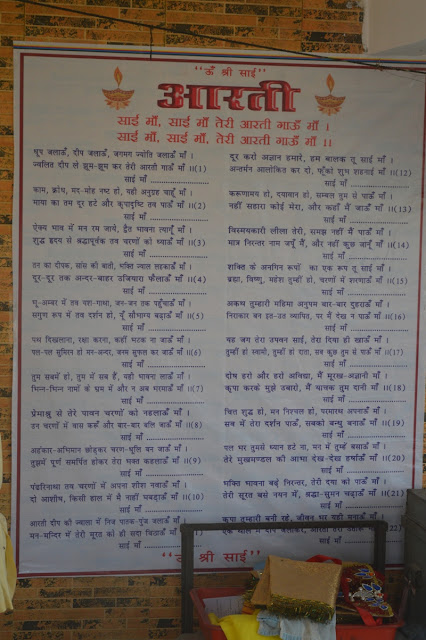 "ॐ श्री साई"
आरती
साई माँ, साई माँ तेरी आरती गाऊँ माँ ।
साई माँ, साई माँ, तेरी आरती गाऊँ माँ ।।
धूप जलाऊँ, दीप जलाऊँ, जगमग ज्योति जलाऊँ माँ ।
ज्वलित दीप ले झूम-झूम कर तेरी आरती गाऊँ माँ ।।(1)
साई माँ
काम, क्रोध, मद-मोह नष्ट हो, यही अनुग्रह चाहूँ माँ ।
माया का तम दूर हटे और कृपादृष्टि तव पाऊँ माँ ।।(2)
साई माँ
ऐक्य भाव में मन रम जाये, द्वैत भावना त्यागूँ माँ ।
शुद्ध हृदय से श्रद्धापूर्वक तव चरणों को ध्याऊँ माँ ।।(3)
साई माँ
तन का दीपक, सांस की बाती, भक्ति ज्वाल लहकाऊँ माँ ।
दूर-दूर तक अन्दर-बाहर उजियारा फैलाऊँ माँ ।।(4)
साई माँ
भू-अम्बर में तव यश-गाथा, जन-जन तक पहुँचाऊँ माँ ।
सगुण रूप में तव दर्शन हो, यूँ सौभाग्य बढ़ाऊँ माँ ।।(5)
साई माँ
पथ दिखलाना, रक्षा करना, कहीं भटक ना जाऊँ माँ ।
पल-पल सुमिरन हो मन-अन्दर, जनम सुफल कर जाऊँ माँ ।।(6)
साई माँ
तुम सबमें हो, तुम में सब हैं, यही भावना लाऊँ माँ ।
भिन्न-भिन्न नामों के भ्रम में और न अब भरमाऊँ माँ ।।(7)
साई माँ
प्रेमाश्रु से तेरे पावन चरणों को नहलाऊँ माँ ।
उन चरणों में वास करूँ और बार-बार बलि जाऊँ माँ ।।(8)
साई माँ
अहंकार-अभिमान छोड़कर चरण-धूलि बन जाऊँ माँ ।
तुझमें पूर्ण समर्पित होकर तेरा भक्त कहलाऊँ माँ ।।(9)
साई माँ
पंढरिनाथा तव चरणों में अपना शीश नवाऊँ माँ ।
दो आशीष, किसी हाल में मैं नाहीं घबड़ाऊँ माँ ।।(10)
साई माँ
आरती दीप की ज्वाला में निज पातक-पुंज जलाऊँ माँ ।
मन-मन्दिर में तेरी सूरत को ही सदा बिठाऊँ माँ ।।(11)
साई माँ
दूर करो अज्ञान हमारे, हम बालक तू साई माँ ।
अन्तर्मन आलोकित कर दो, फूँको शुभ शहनाई माँ ।।(12)
साई माँ
करूणामय हो, दयावान हो, सम्बल तुम से पाऊँ माँ ।
नहीं सहारा कोई मेरा, और कहाँ मैं जाऊँ माँ ।।(13)
साई माँ
विस्मयकारी लीला तेरी, समझ नहीं मैं पाऊँ माँ ।
मात्र निरन्तर नाम जपूँ मैं, और नहीं कुछ जानूँ माँ ।।(14)
साई माँ
शक्ति के अनगिन रूपों का एक रूप तू साई माँ ।
ब्रह्मा, विष्णु, महेश तुम्हीं हो, चरणों में शरणाऊँ माँ ।।(15)
साई माँ
अकथ तुम्हारी महिमा अनुपम बार-बार दुहराऊँ माँ ।
निराकार बन इत-उत व्यापित, पर मैं देख न पाऊँ माँ ।।(16)
साई माँ
यह जग तेरा उपवन साई, तेरा दिया ही खाऊँ माँ ।
तुम्हीं हो स्वामी, तुम्हीं हो दाता, सब कुछ तुम से पाऊँ माँ ।।(17)
साई माँ
दोष हरो और हरो अविद्या, मैं मूरख-अज्ञानी माँ ।
कृपा करके मुझे उबारो, मैं याचक तुम दानी माँ ।।(18)
साई माँ
चित्त शुद्ध हो, मन निश्चल हो, परमारथ अपनाऊँ माँ ।
सब में तेरा दर्शन पाऊँ, सबको बन्धु बनाऊँ माँ ।।(19)
साई माँ
पल भर तुमसे ध्यान हटे ना, मन में तुम्हें बसाऊँ माँ ।
तेरे मुखमण्डल की आभा देख-देख हर्षाऊँ माँ ।।(20)
साई माँ
भक्ति भावना बढ़े निरन्तर, तेरी दया को पाऊँ माँ ।
तेरी सूरत बसे नयन में, श्रद्धा-सुमन चढ़ाऊँ माँ ।।(21)
साई माँ
कृपा तुम्हारी बनी रहे, जीवन भर यही मनाऊँ माँ ।
साई माँ
"ॐ श्री साई"